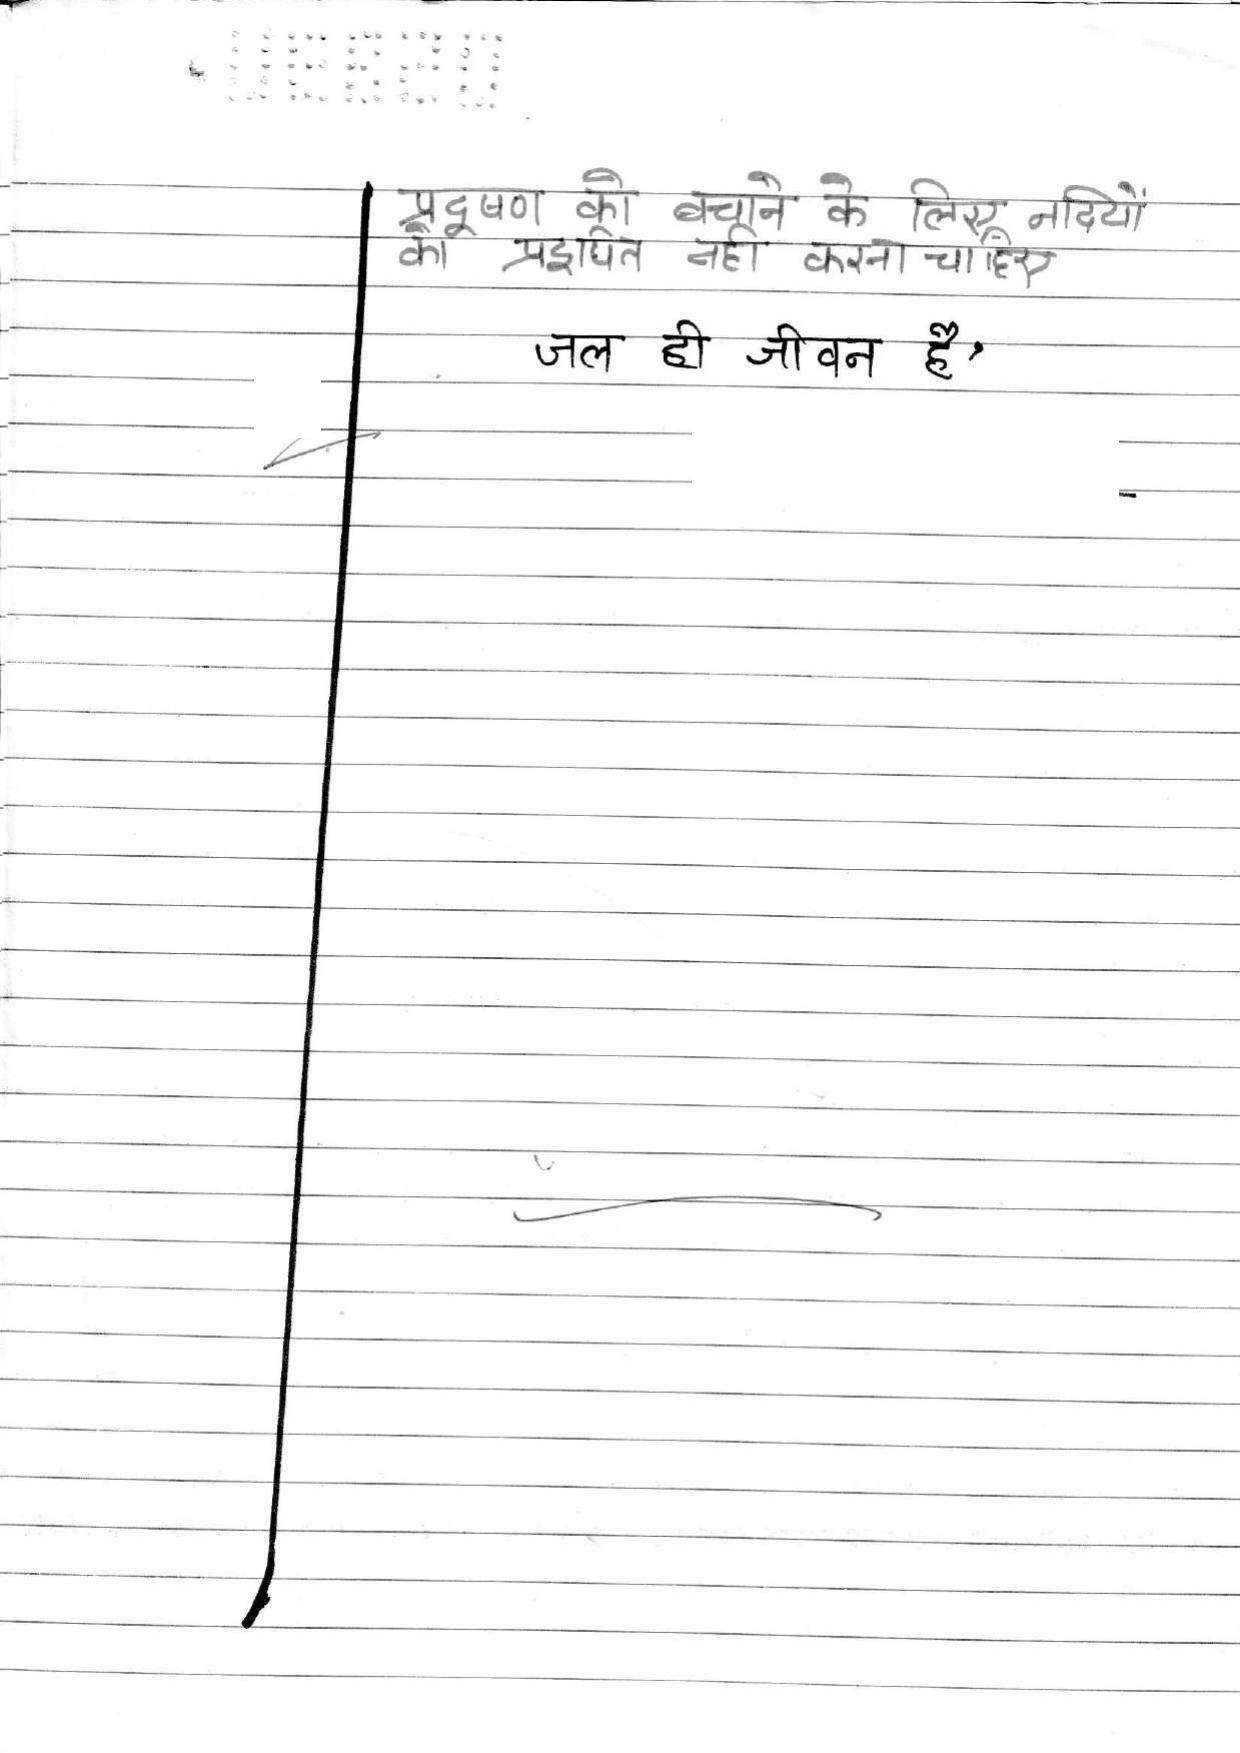 प्रदूषण को बचाने के लिए नदियों
को नहीं करना चाहिए
जल ही जीवन है,